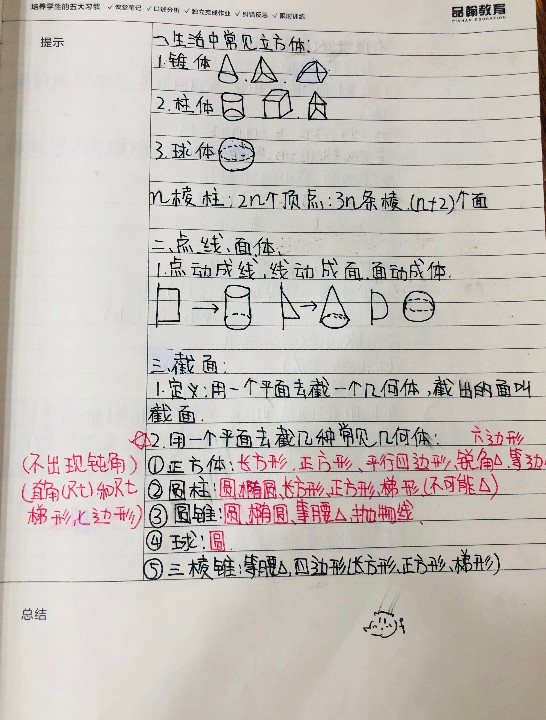 培养学生的五大习惯 ✓课堂笔记 ✓口述分析 ✓独立完成作业 ✓纠错反思 ✓限时训练
品翰教育
PINHAN EDUCATION
提示
一、生活中常见立方体:
1.锥体
2.柱体
3.球体
n棱柱:2n个顶点:3n条棱.(n+2)个面
二、点.线、面体:
1.点动成线,线动成面.面动成体.
三、截面:
1.定义:用一个平面去截一个几何体,截出的面叫
截面.
☆2.用一个平面去截几种常见几何体:
六边形
(不出现钝角)
①正方体:长方形.正方形、平行四边形,锐角△,等边
(直角(Rt)和Rt
②圆柱:圆,椭圆、长方形,正方形,梯形(不可能△)
梯形,七边形)
③圆锥:圆,椭圆、等腰△,抛物线、
④球:圆.
⑤三棱锥:等腰△,四边形(长方形、正方形、梯形)
总结